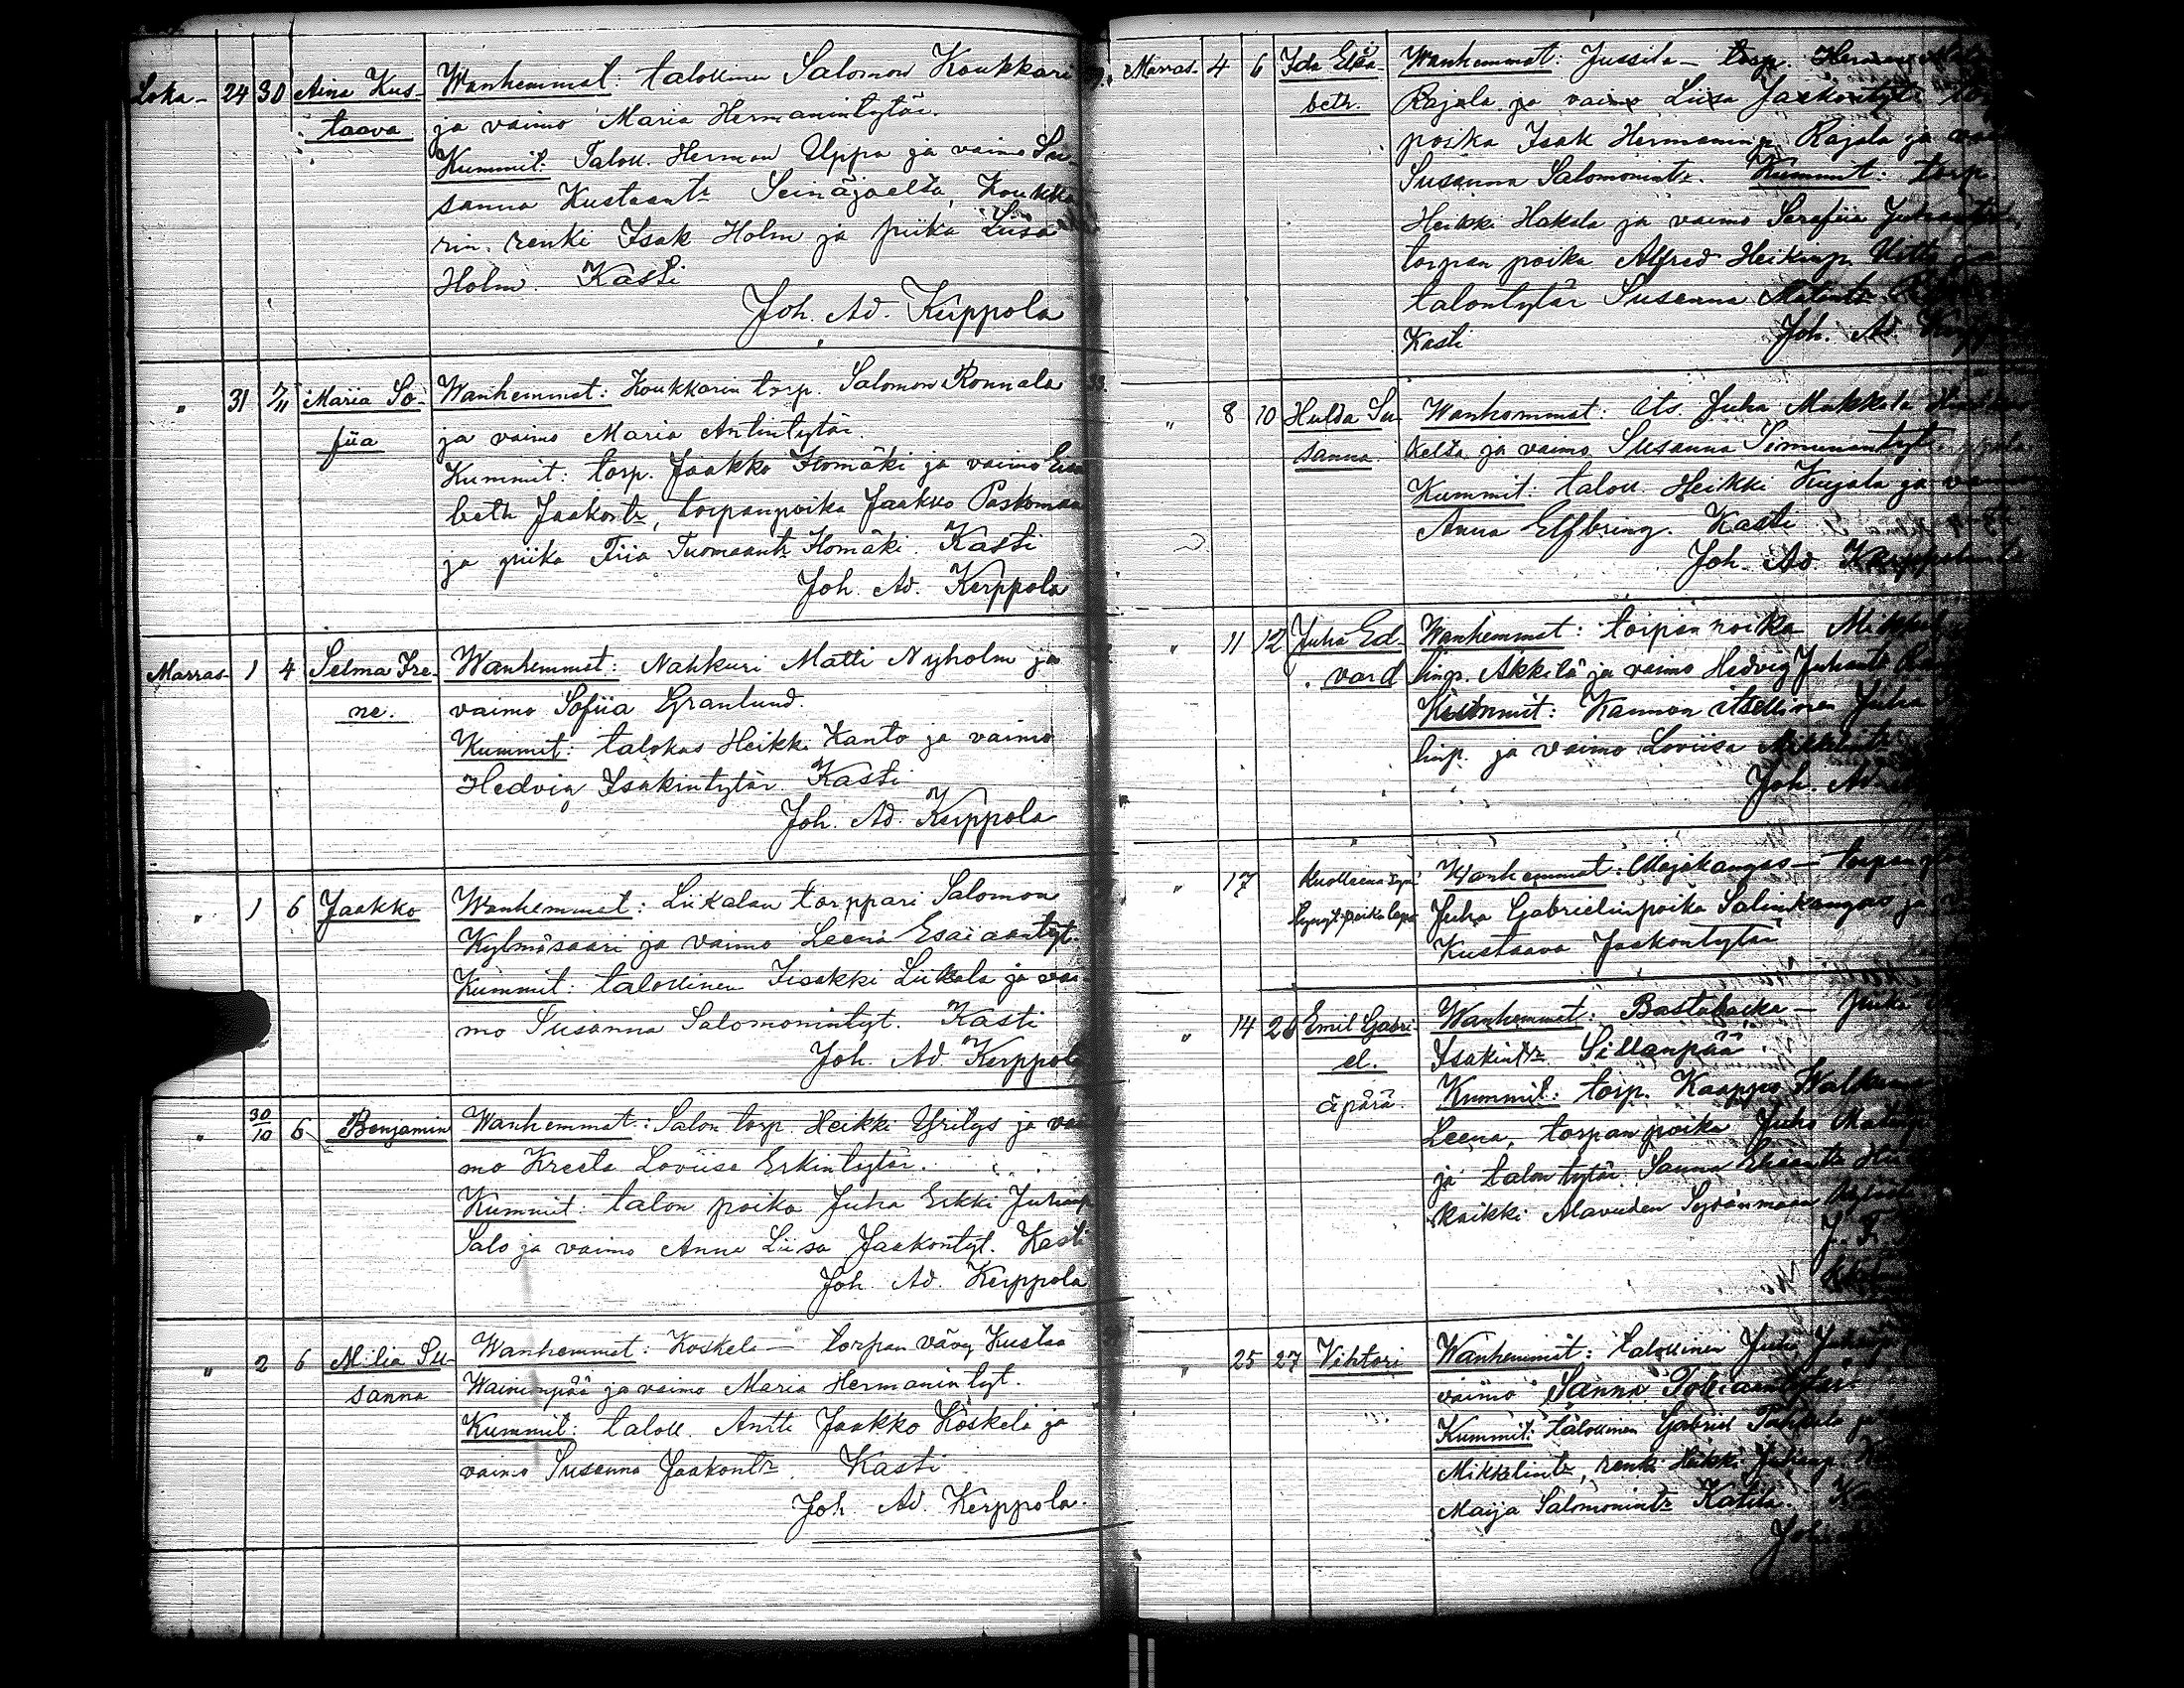 Loka- 24 30 Aina Kus- Wanhemmat: talollinen Salomon Koukkari
taava ja vaimo Maria Hermanintytär.
Kummit: Taloll. Herman Uppa ja vaimo Su
sanna Kustaantr Seinäjoelta, Koukka
rin renki Isak Holm ja piika Liisa
Holm. Kasti
Joh. Ad. Kerppola
" 31 7/11 Maria So- Wanhemmat: Koukkarin torp. Salomon Ronnala
fiia ja vaimo Maria Antintytär.
Kummit: torp. Jaakko Ilomäki ja vaimo Elisa
beth Jaakontr, torpanpoika Jaakko Paskomaa
ja piika Fiia Tuomaantr Ilomäki. Kasti
Joh. Ad. Kerppola
Marras- 1 4 Selma Ire- Wanhemmat: Nahkuri Matti Nyholm ja
ne. vaimo Sofiia Granlund.
Kummit: talokas Heikki Kanto ja vaimo
Hedvig Isakintytär. Kasti
Joh. Ad. Kerppola
" 1 6 Jaakko Wanhemmat: Liikalan torppari Salomon
Kylmäsaari ja vaimo Leena Esaiaantyt.
Kummit: talollinen Iisakki Liikala ja vai-
mo Susanna Salomonintyt. Kasti
Joh. Ad. Kerppola
" 30/10 6 Benjamin Wanhemmat: Salon torp. Heikki Yritys ja vai
mo Kreeta Loviisa Erkintytär.
Kummit: talon poika Juha Erkki Juhanp
Salo ja vaimo Anna Liisa Jaakontyt. Kasti
Joh. Ad. Kerppola
" 2 6 Milia Su- Wanhemmat: Koskela- torpan vävy Kustaa
sanna Wainionpää ja vaimo Maria Hermanintyt.
Kummit: taloll. Antti Jaakko Koskela ja
vaimo Susanna Jaakontr. Kasti
Joh. Ad. Kerppola.
Marras- 4 6 Ida Elisa- Wanhemmat: Jussila- torp. Herman
beth. Rajala ja vaimo Liisa Jaakontyt.
poika Isak Hermaninp. Rajala ja
Susanna Salomonintr. Kummit: torp.
Heikki Hakala ja vaimo Serafiia Juhantr,
torpan poika Alfred Heikinp.
talontytär Susanna Matintr
Kasti Joh. Ad. Kerpp
" 8 10 Hulda Su- Wanhemmat: its. Juha Makkala
sanna. kelta ja vaimo Susanna Simunantyt
Kummit: taloll. Heikki Kujala ja vaimo
Anna Elfbring. Kasti
Joh. Ad. Kerppola
" 11 12 Juha Ed- Wanhemmat: torpan poika Mikko
vard linp. Akkila ja vaimo Hedvig Juhantr
Kummit: Kannon itsellinen Juha
linp. ja vaimo Loviisa Mikkelintr
Joh. Ad.
" 17 Kuolleena syn- Wanhemmat: Majakangas- torpan
tynyt poika lapsi Juha Gabrielinpoika Salinkangas ja
Kustaava Jaakontytär
" 14 26 Emil Gabri- Wanhemmat: Bastubacka- piika
el. Isakintr Sillanpää
äpärä. Kummit: torp. Kaappo
Leena, torpan poika Juho
ja talon tytär Sanna
kaikki Alavuden Sydänmaan
J. F.
" 25 27 Vihtori Wanhemmat: talollinen Juha Juhanp
vaimo Sanna Tobiaantytär
Kummit: talollinen Gabriel ja
Mikkelintr, renki Heikki Juhanp.
Maija Salomonintr Katila.
Joh.